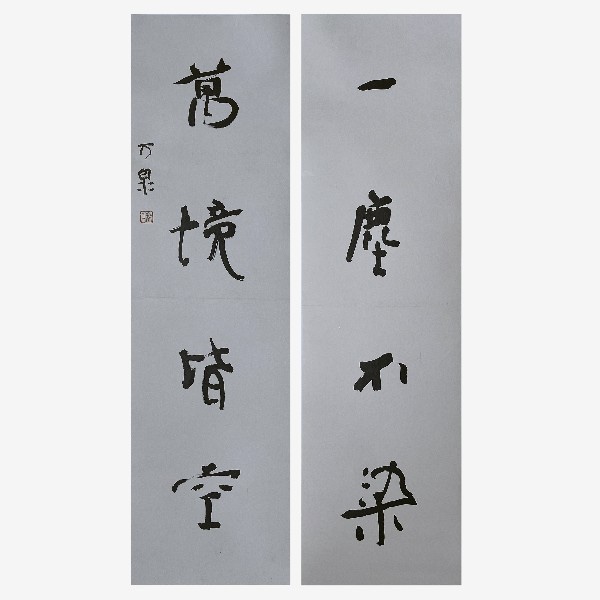 一塵不染
萬境皆空